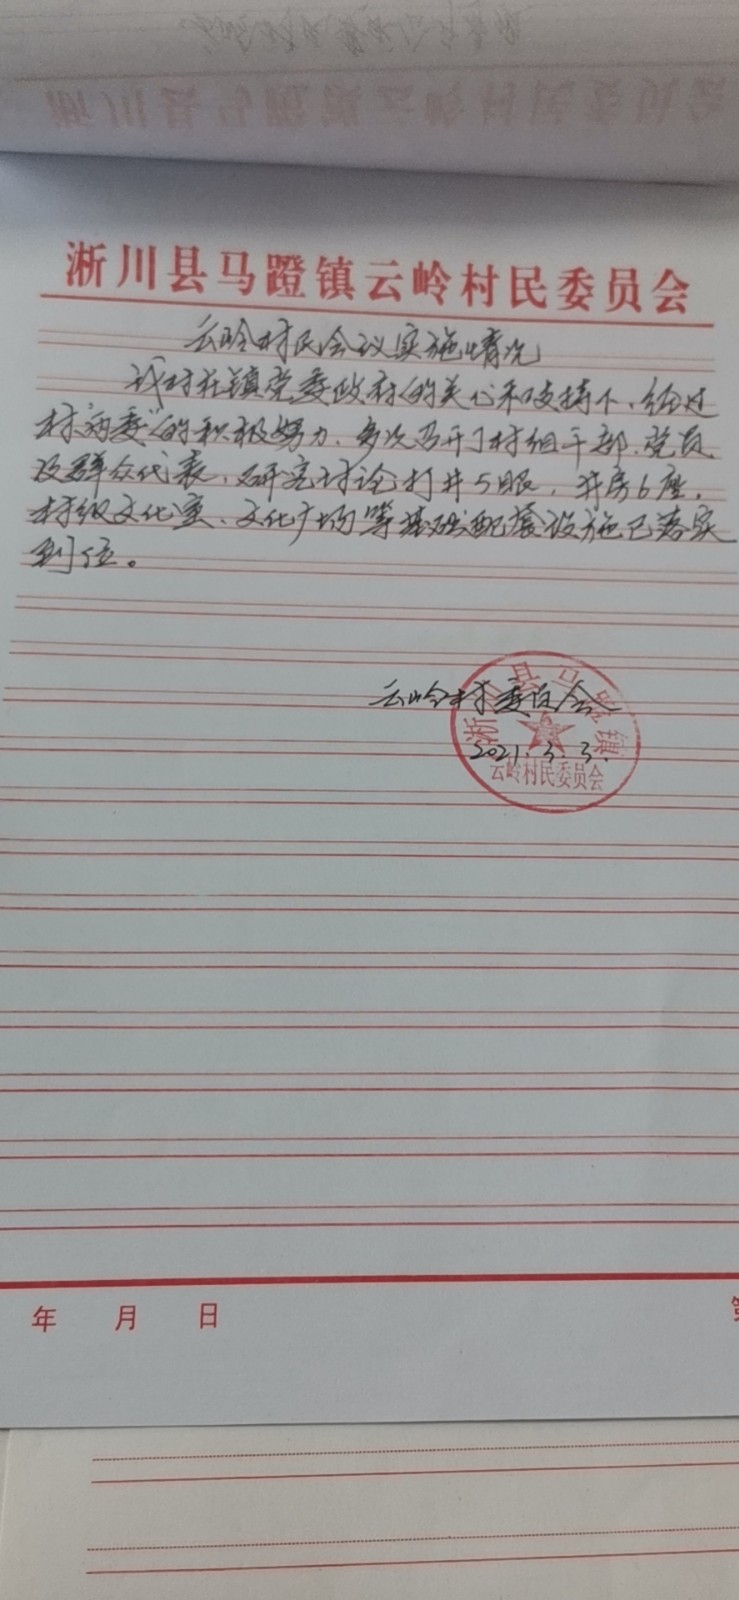 淅川县马蹬镇云岭村民委员会
云岭村民会议实施情况
我村在镇党委政府的关心和支持下，经过
村“两委”的积极努力、多次召开了村组干部、党员
及群众代表，研究讨论打井5眼，井房6座，
村级文化室、文化广场等基础配套设施已落实
到位。
云岭村委员会
2021.3.3.
淅川县马蹬镇
云岭村民委员会
年 月 日